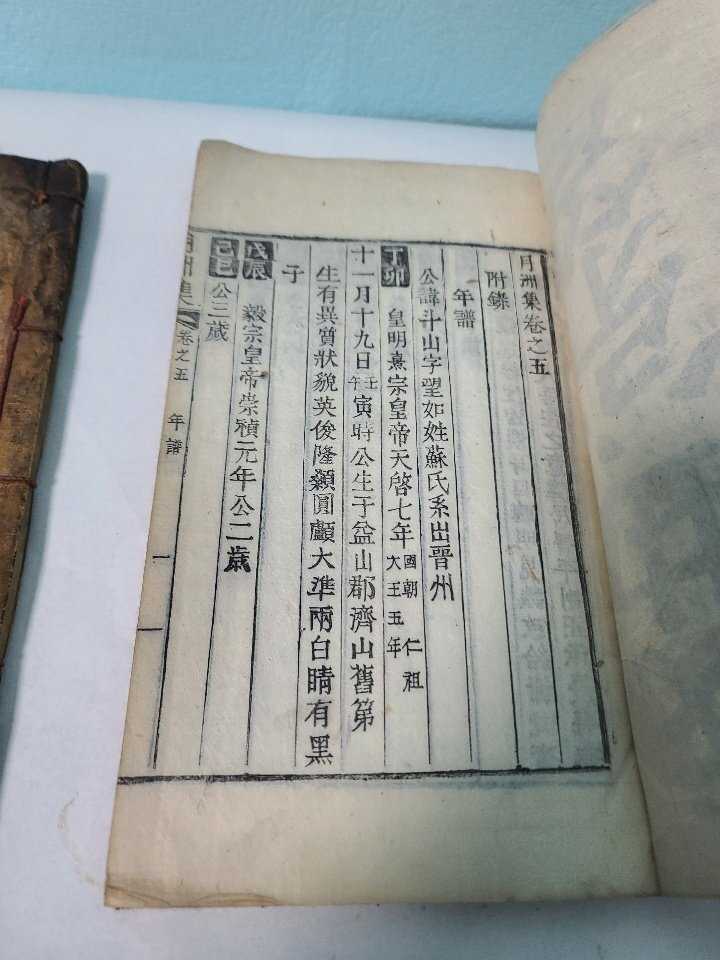 月洲集卷之五
附錄
年譜
公諱斗山字望如姓蘇氏系出晋州
丁卯 皇明熹宗皇帝天啓七年 國朝 仁祖大王五年
十一月十九日 壬午 寅時公生于益山郡濟山舊第
生有異質狀貌英俊隆顙圓顱大準兩白睛有黑
子
戊辰 毅宗皇帝崇禎元年公二歲
己巳 公三歲
月洲集 卷之五 年譜 一